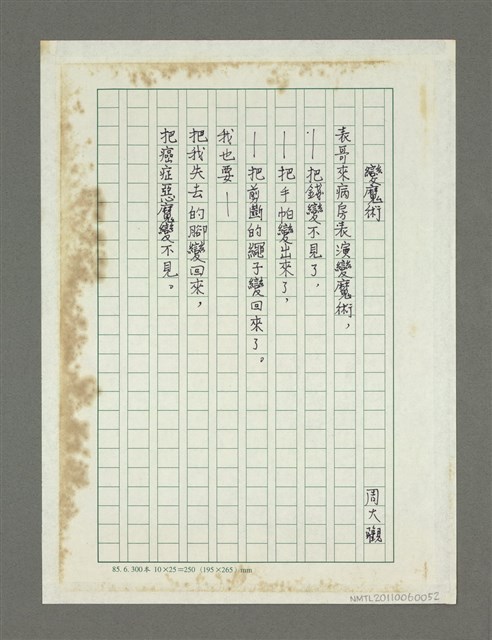 變魔術
周大觀
表哥來病房表演變魔術，
——把錢變不見了，
——把手帕變出來了，
——把剪斷的繩子變回來了。
我也要——
把我失去的腳變回來，
把癌症惡魔變不見。
85. 6. 300本 10×25=250 (195×265) mm
NMTL20110060052